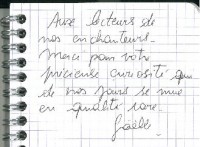 Avec lecteurs de
nos enchanteurs.
merci pour votre
précieuse curiosité qui
de nos jours se mue
en qualité rare.
Gaëlle